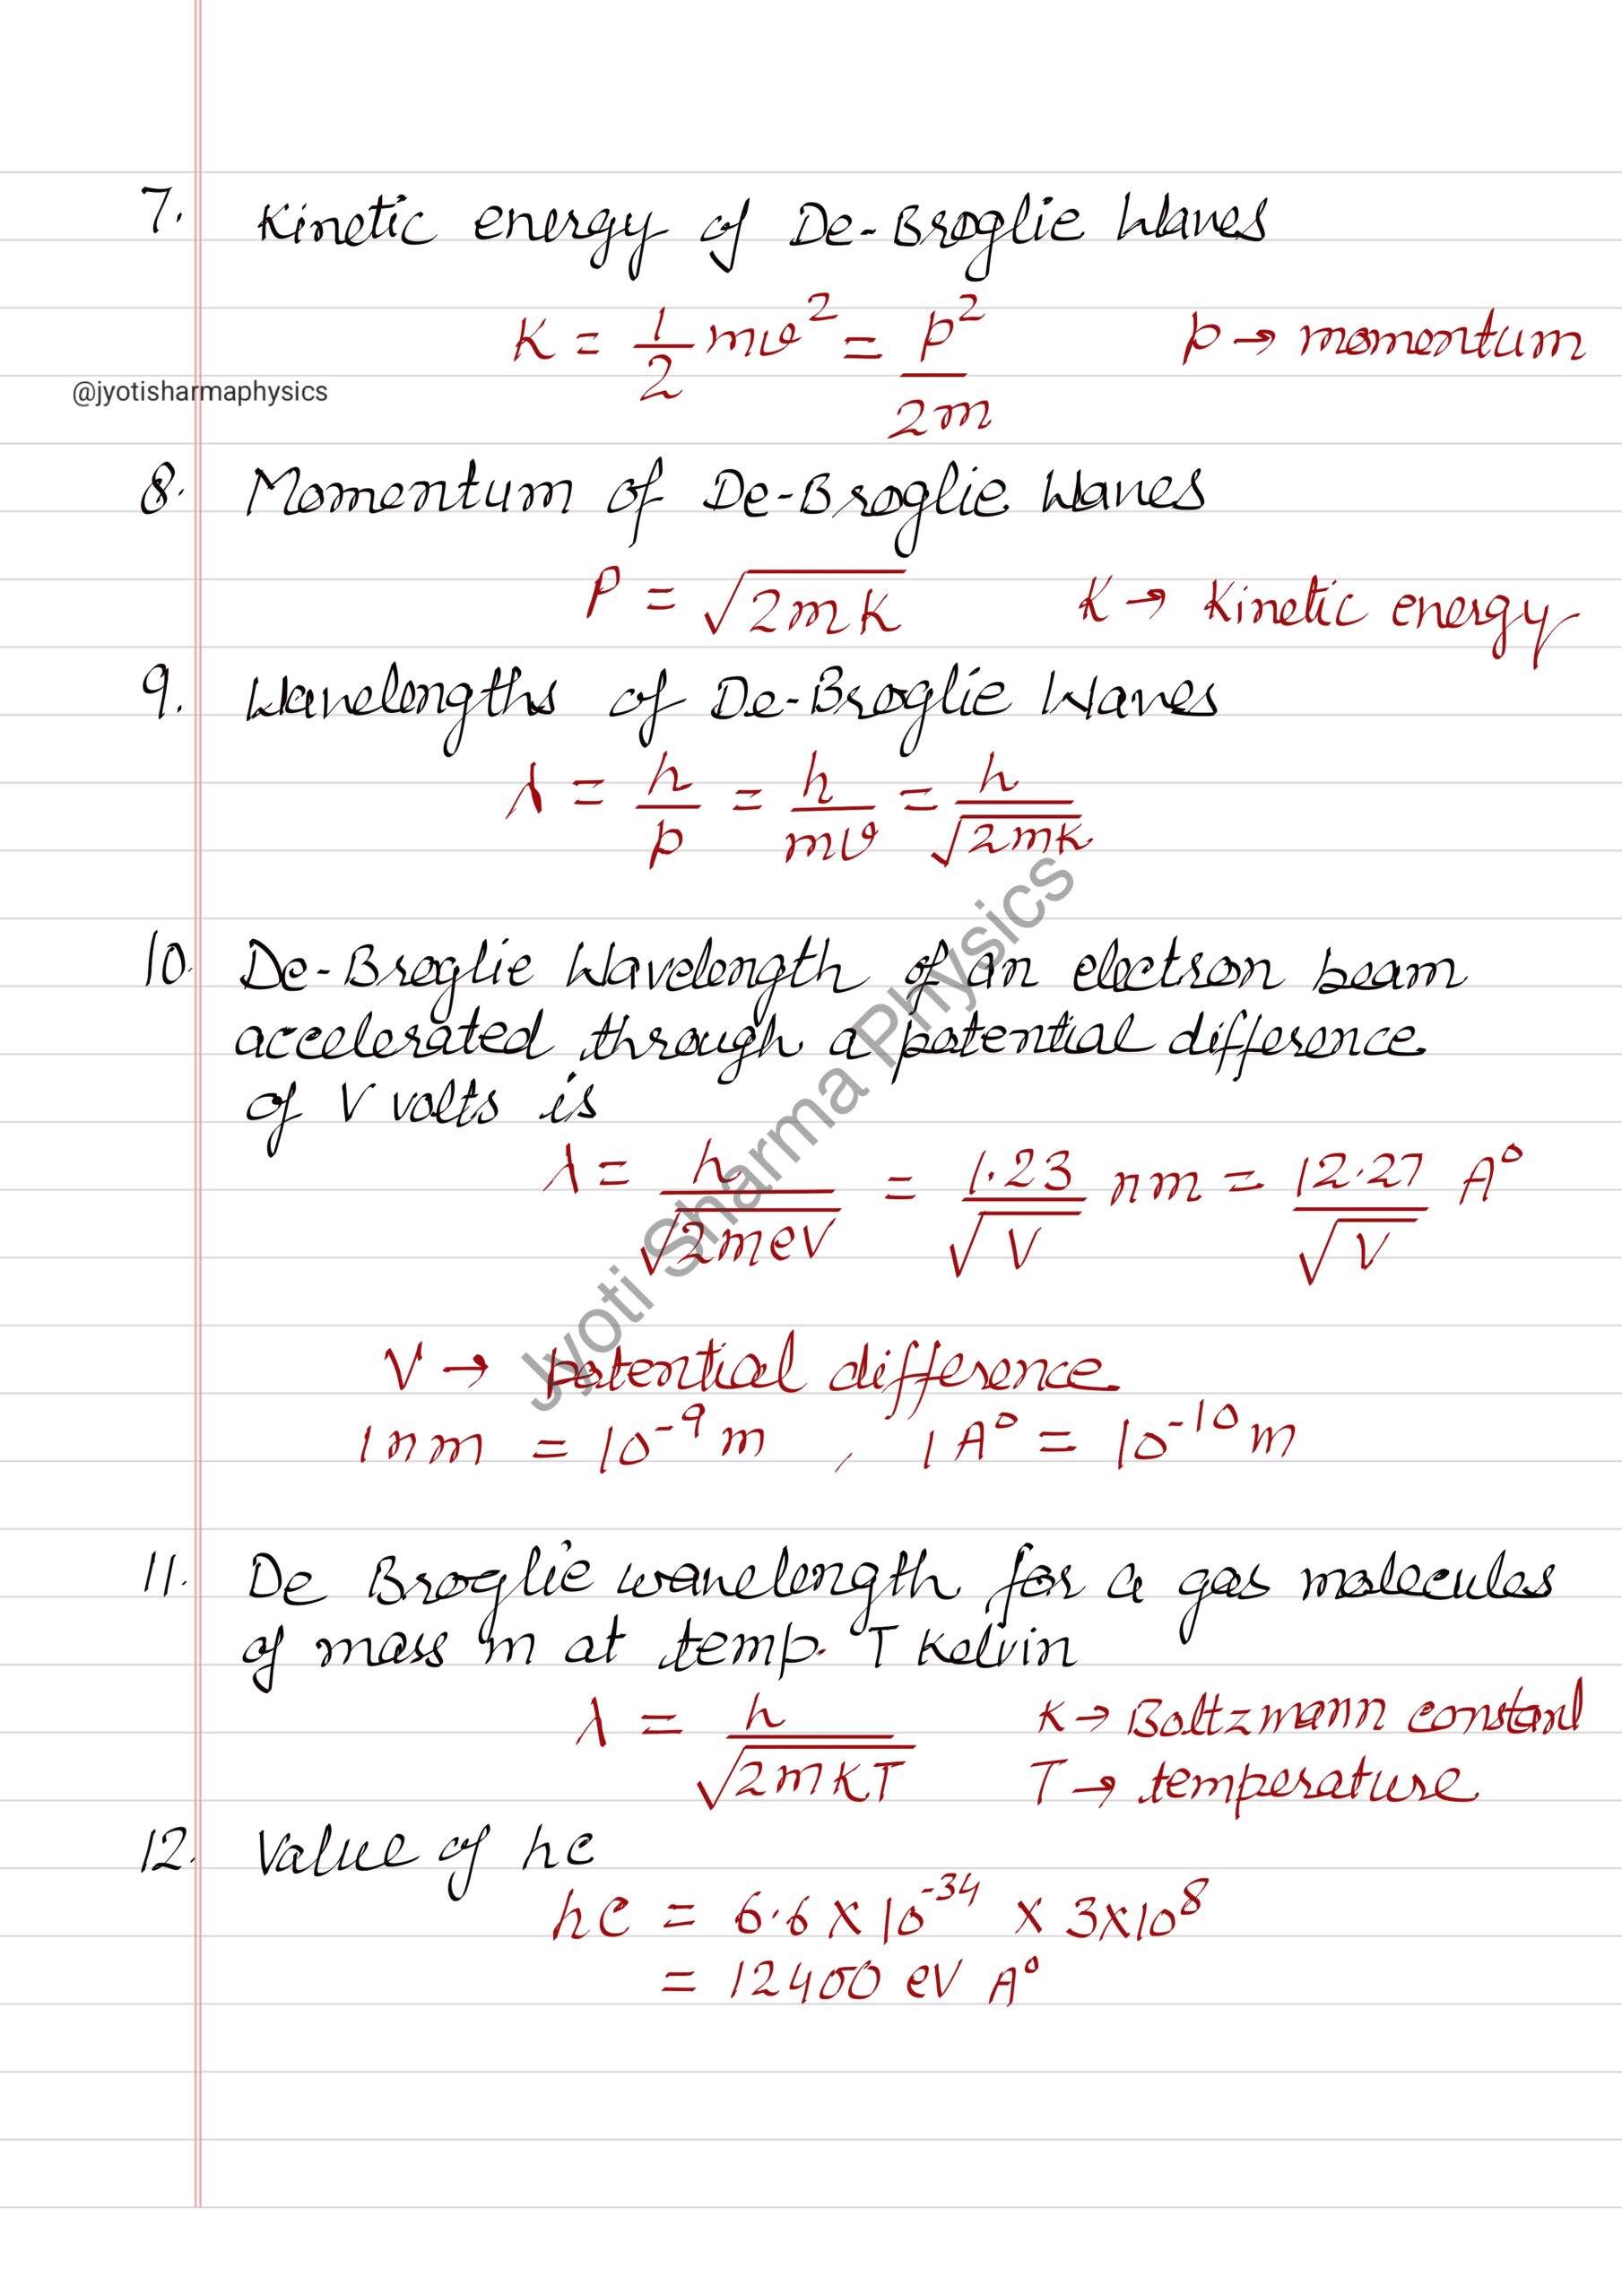 7. Kinetic energy of De-Broglie Waves
K = 1/2 mv² = p²/2m    p → momentum
@jyotisharmaphysics
8. Momentum of De-Broglie Waves
P = √2mK    K → Kinetic energy
9. Wavelengths of De-Broglie Waves
λ = h/p = h/mv = h/√2mK
10. De-Broglie Wavelength of an electron beam
accelerated through a potential difference
of V volts is
λ = h/√2meV = 1.23/√V nm = 12.27/√V A°
V → potential difference
1nm = 10⁻⁹ m , 1A° = 10⁻¹⁰ m
11. De Broglie wavelength for a gas molecules
of mass m at temp. T Kelvin
λ = h/√2mKT    K → Boltzmann constant
T → temperature
12. Value of hc
hc = 6.6 × 10⁻³⁴ × 3×10⁸
= 12400 eV A°
Jyoti Sharma Physics